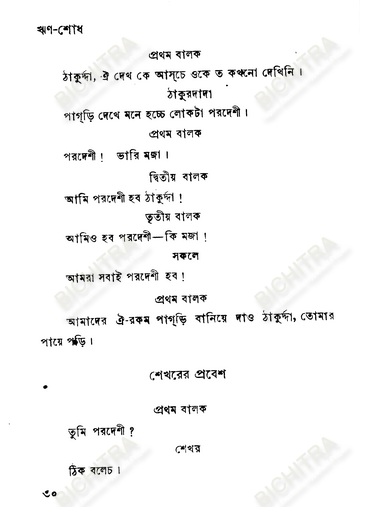 ঋণ-শোধ
প্রথম বালক
ঠাকুর্দ্দা, ঐ দেখ কে আস্‌চে ওকে ত কখনো দেখিনি।
ঠাকুরদাদা
পাগ্‌ড়ি দেখে মনে হচ্চে লোকটা পরদেশী।
প্রথম বালক
পরদেশী! ভারি মজা।
দ্বিতীয় বালক
আমি পরদেশী হব ঠাকুর্দ্দা!
তৃতীয় বালক
আমিও হব পরদেশী—কি মজা!
সকলে
আমরা সবাই পরদেশী হব!
প্রথম বালক
আমাদের ঐ-রকম পাগ্‌ড়ি বানিয়ে দাও ঠাকুর্দ্দা, তোমার
পায়ে পড়ি।
শেখরের প্রবেশ
প্রথম বালক
তুমি পরদেশী?
শেখর
ঠিক বলেচ।
৩০
BICHITRA
BICHITRA
BICHITRA
BICHITRA
BICHITRA
BICHITRA